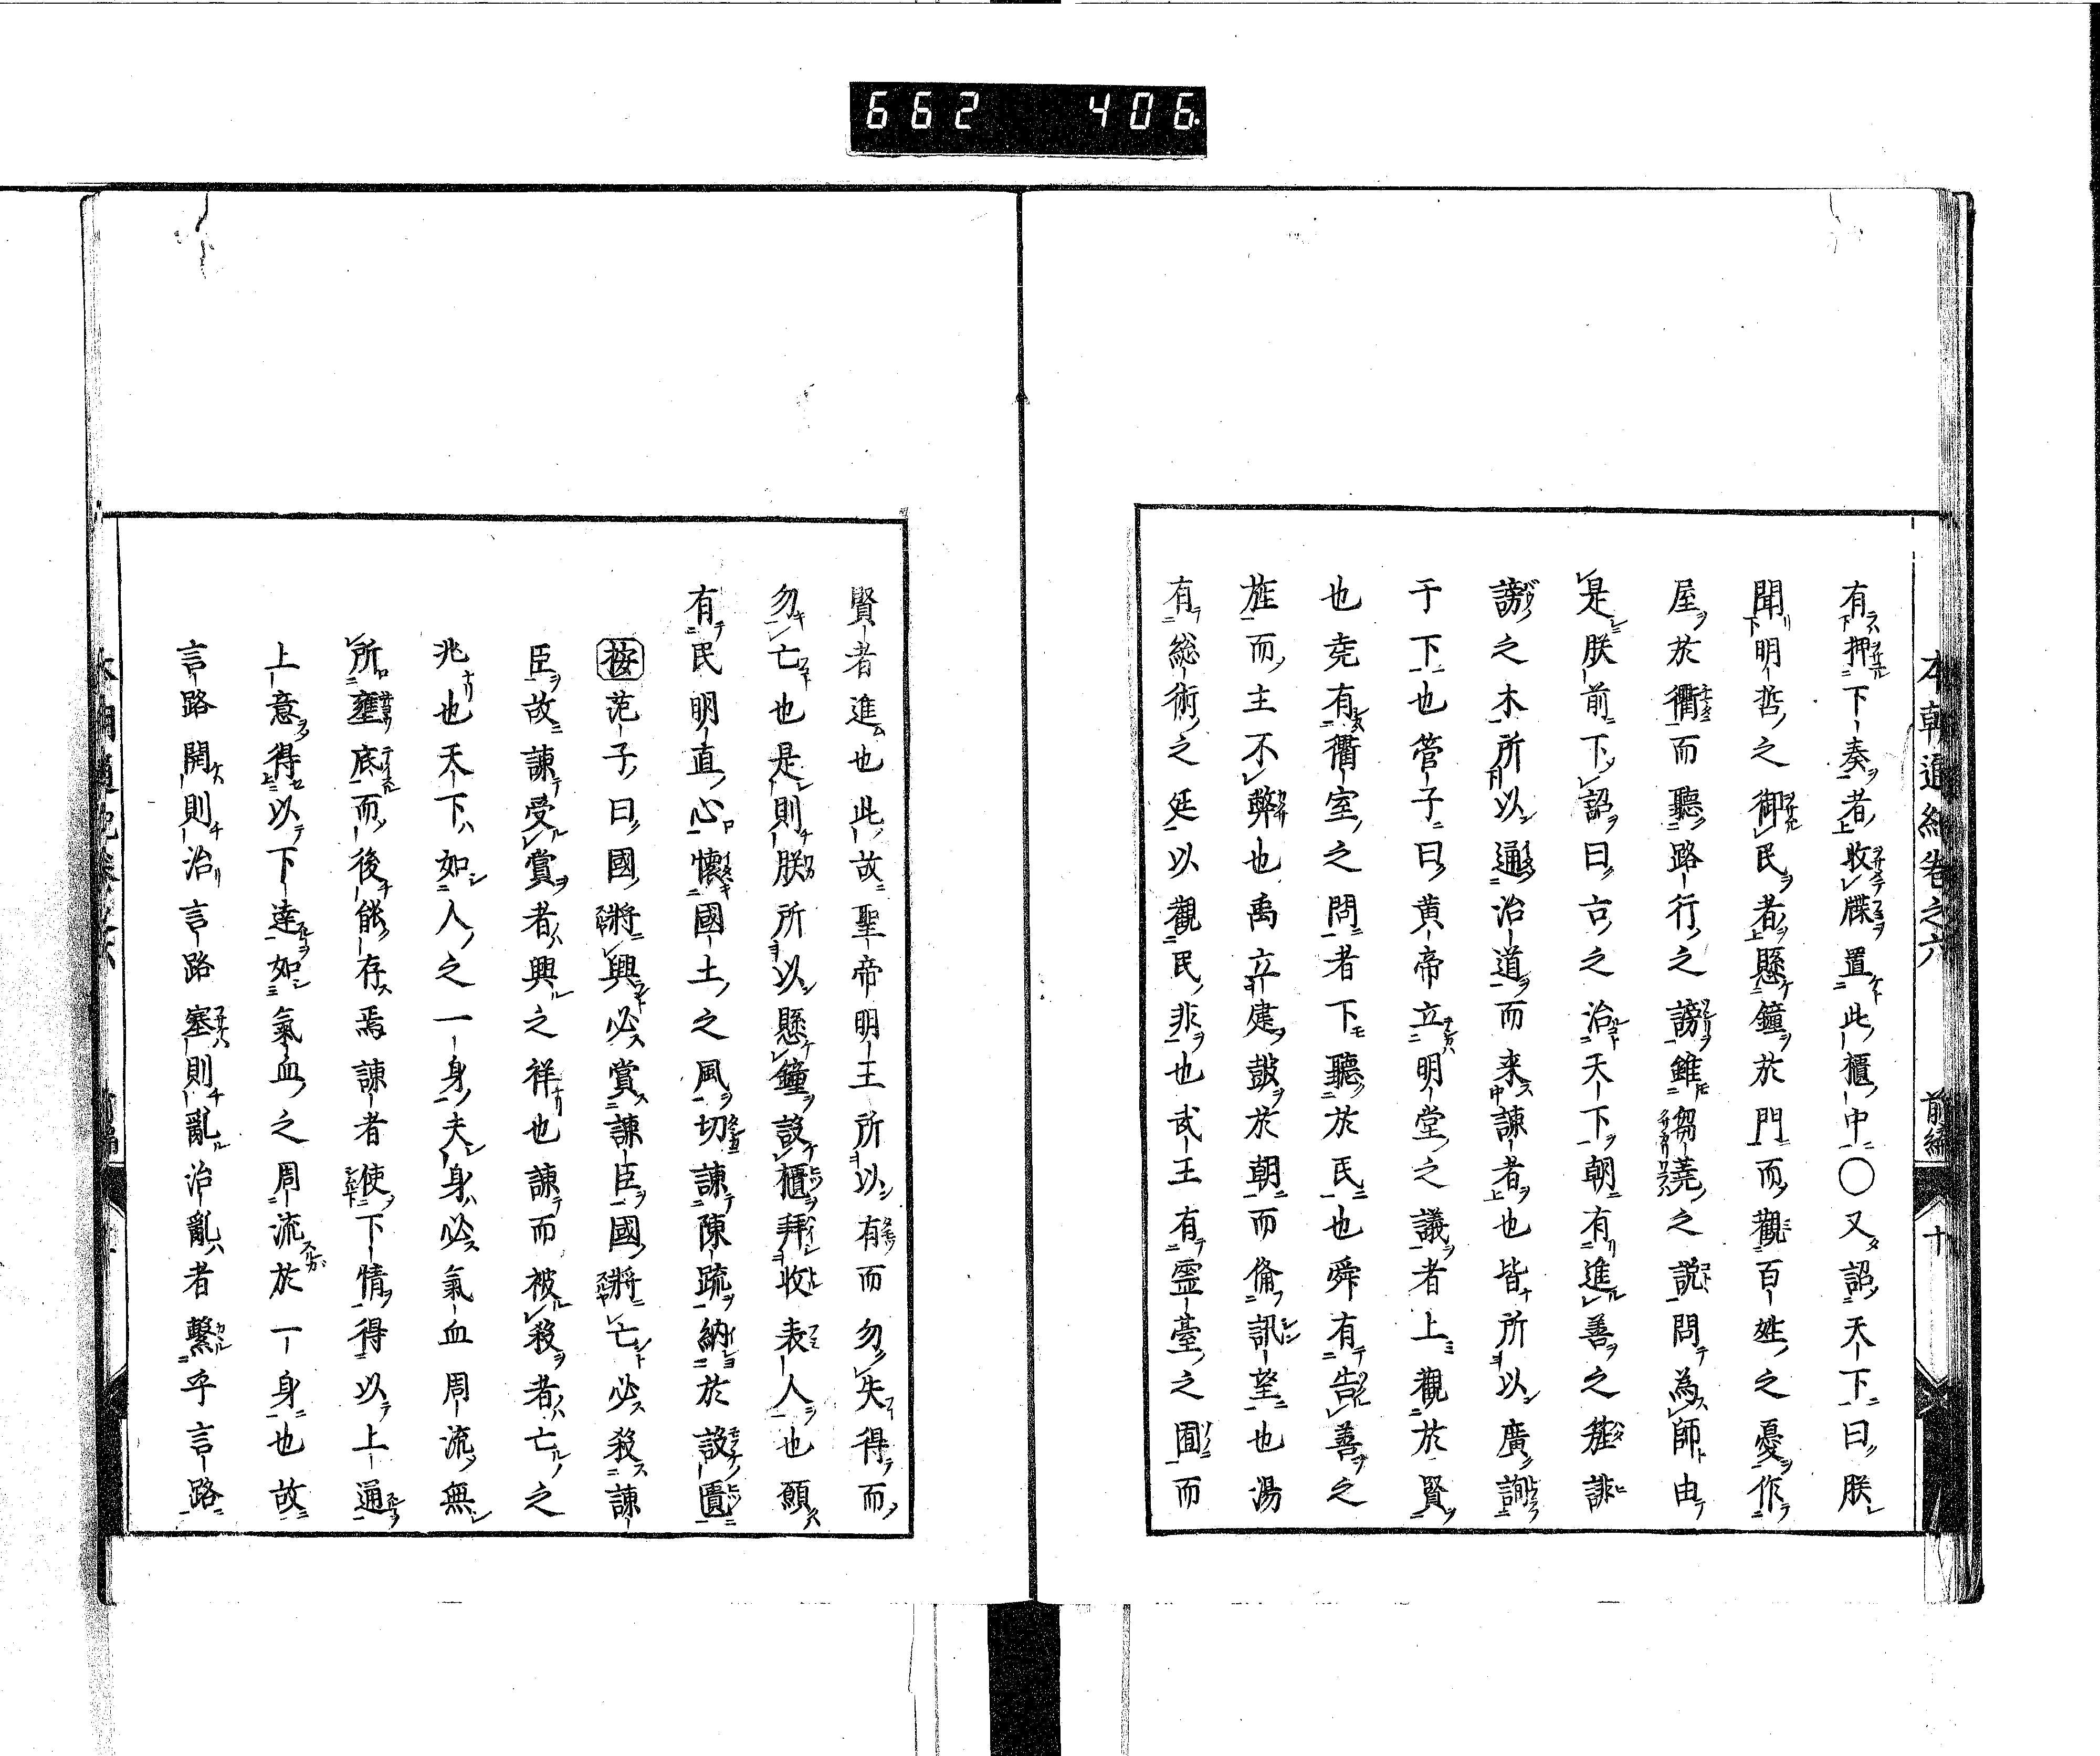 662 406
本朝通紀卷之六 前編 十
有押下奏者收牒置此櫃中○又詔天下曰朕
聞明哲之御民者懸鐘於門而觀百姓之憂作
屋於衢而聽路行之謗雖蒭蕘之說問為師由
是朕前下詔曰古之治天下朝有進善之旌誹
謗之木所以通治道而来諫者也皆所以廣詢
于下也管子曰黄帝立明堂之議者上觀於賢
也尭有衢室之問者下聽於民也舜有告善之
旌而主不弊也禹立建皷於朝而俻訊望也湯
有総術之延以觀民非也武王有霊臺之囿而
賢者進也此故聖帝明王所以有而勿失得而
勿亡也是則朕所以懸鐘設櫃拜收表人也願
有民明直心懷國土之風切諫陳疏納於設匱
按范子曰國將興必賞諫臣國將亡必殺諫
臣故諫受賞者興之祥也諫而被殺者亡之
兆也天下如人之一身夫身必氣血周流無
所壅底而後能存焉諫者使下情得以上通
上意得以下達如氣血之周流於一身也故
言路開則治言路塞則亂治亂者繫乎言路